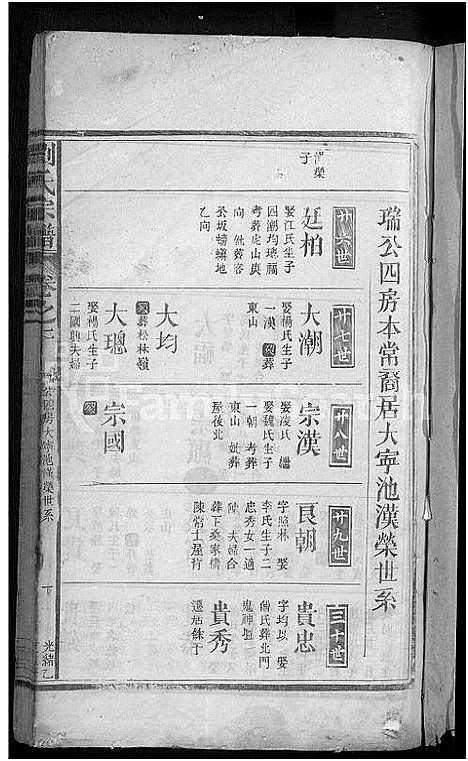 瑞公四房本常裔居大寧池漢榮世系
廿六世
池榮
子
廷柏
娶江氏生子
四潮均璁福
考葬虎山庚
向
公坂螃蟹地
乙向
廿七世
大潮
娶楊氏生子
一漢
葬
東山
大均
葬松林嶺
大璁
娶楊氏生子
二國興夫婦
廿八世
宗漢
娶凌氏 繼
娶魏氏生子
一朝 考葬
東山 妣葬
屋後北
宗國
廿九世
良朝
字照林 娶
李氏生子二
忠秀女一適
陳 夫婦合
葬下奚家橋
陳常士屋背
三十世
貴忠
字均以 娶
傅氏葬北門
鬼神壇
貴秀
遷居餘干
劉氏宗譜
公四房大寧池漢榮世系
光緒乙